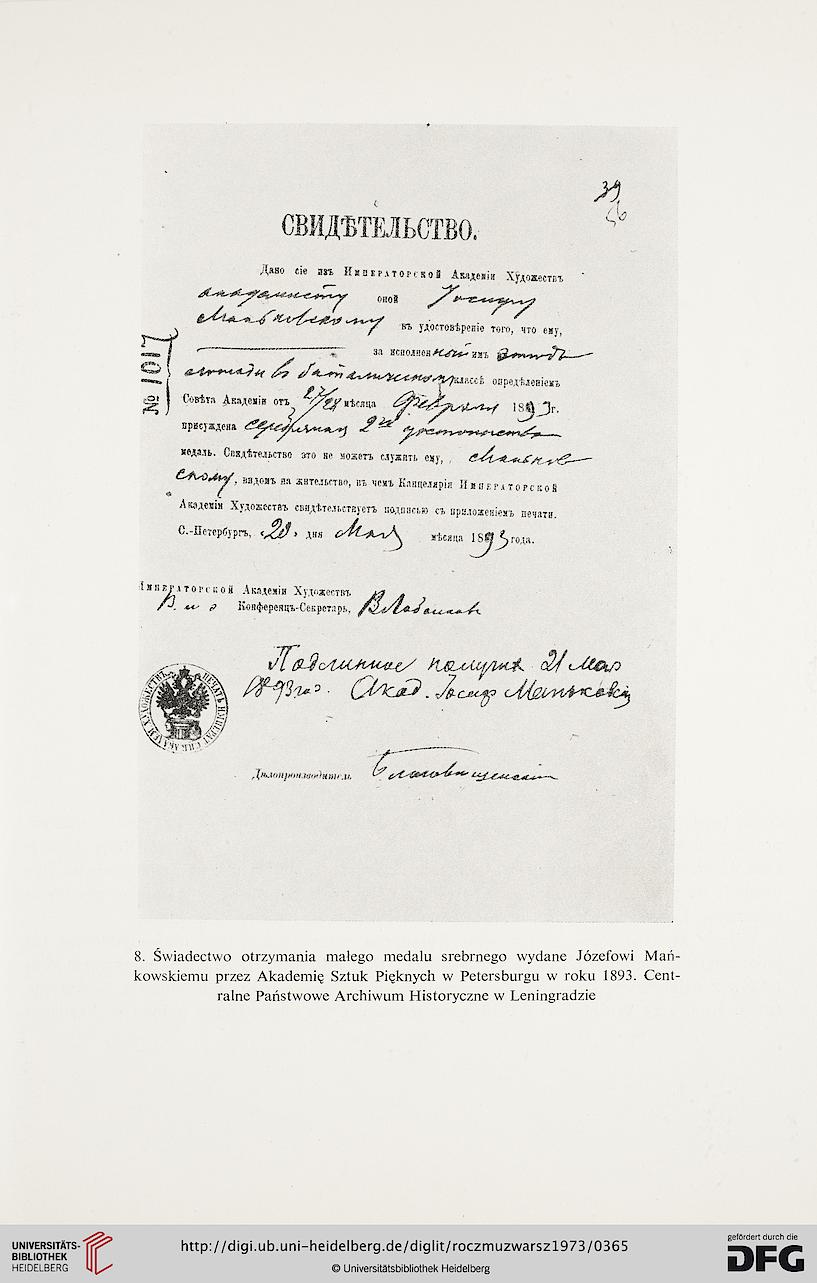 39
56
СВИДѢТЕЛЬСТВО.
Дано сіе изъ Императорской Академіи Художествъ
академисту оной Іосифу
Маньковскому въ удостовѣреніе того, что ему,
за исполненный имъ этюдъ
лошади въ баталическомъ классѣ опредѣленіемъ
Совѣта Академіи отъ 27/28 мѣсяца Февраля 1893 г.
присуждена серебряная 2го достоинства
медаль. Свидѣтельство это не можетъ служить ему, Маньков-
скому, видомъ на жительство, въ чемъ Канцелярія Императорской
Академіи Художествъ свидѣтельствуетъ подписью съ приложеніемъ печати.
С.-Петербургъ, «20» дня Мая мѣсяца 1893 года.
№ 1017
Императорской Академіи Художествъ
Конференцъ-Секретарь,
Подлинное получилъ 21 Мая
1893 го. Акад. Іосифъ Маньковскій
Дѣлопроизводитель Благовѣщенскій
8. Świadectwo otrzymania małego medalu srebrnego wydane Józefowi Mań-
kowskiemu przez Akademię Sztuk Pięknych w Petersburgu w roku 1893. Cent-
ralne Państwowe Archiwum Historyczne w Leningradzie
UNIVERSITÄTS-
BIBLIOTHEK
HEIDELBERG
http://digi.ub.uni-heidelberg.de/diglit/roczmuzwarsz1973/0365
© Universitätsbibliothek Heidelberg
gefördert durch die
DFG